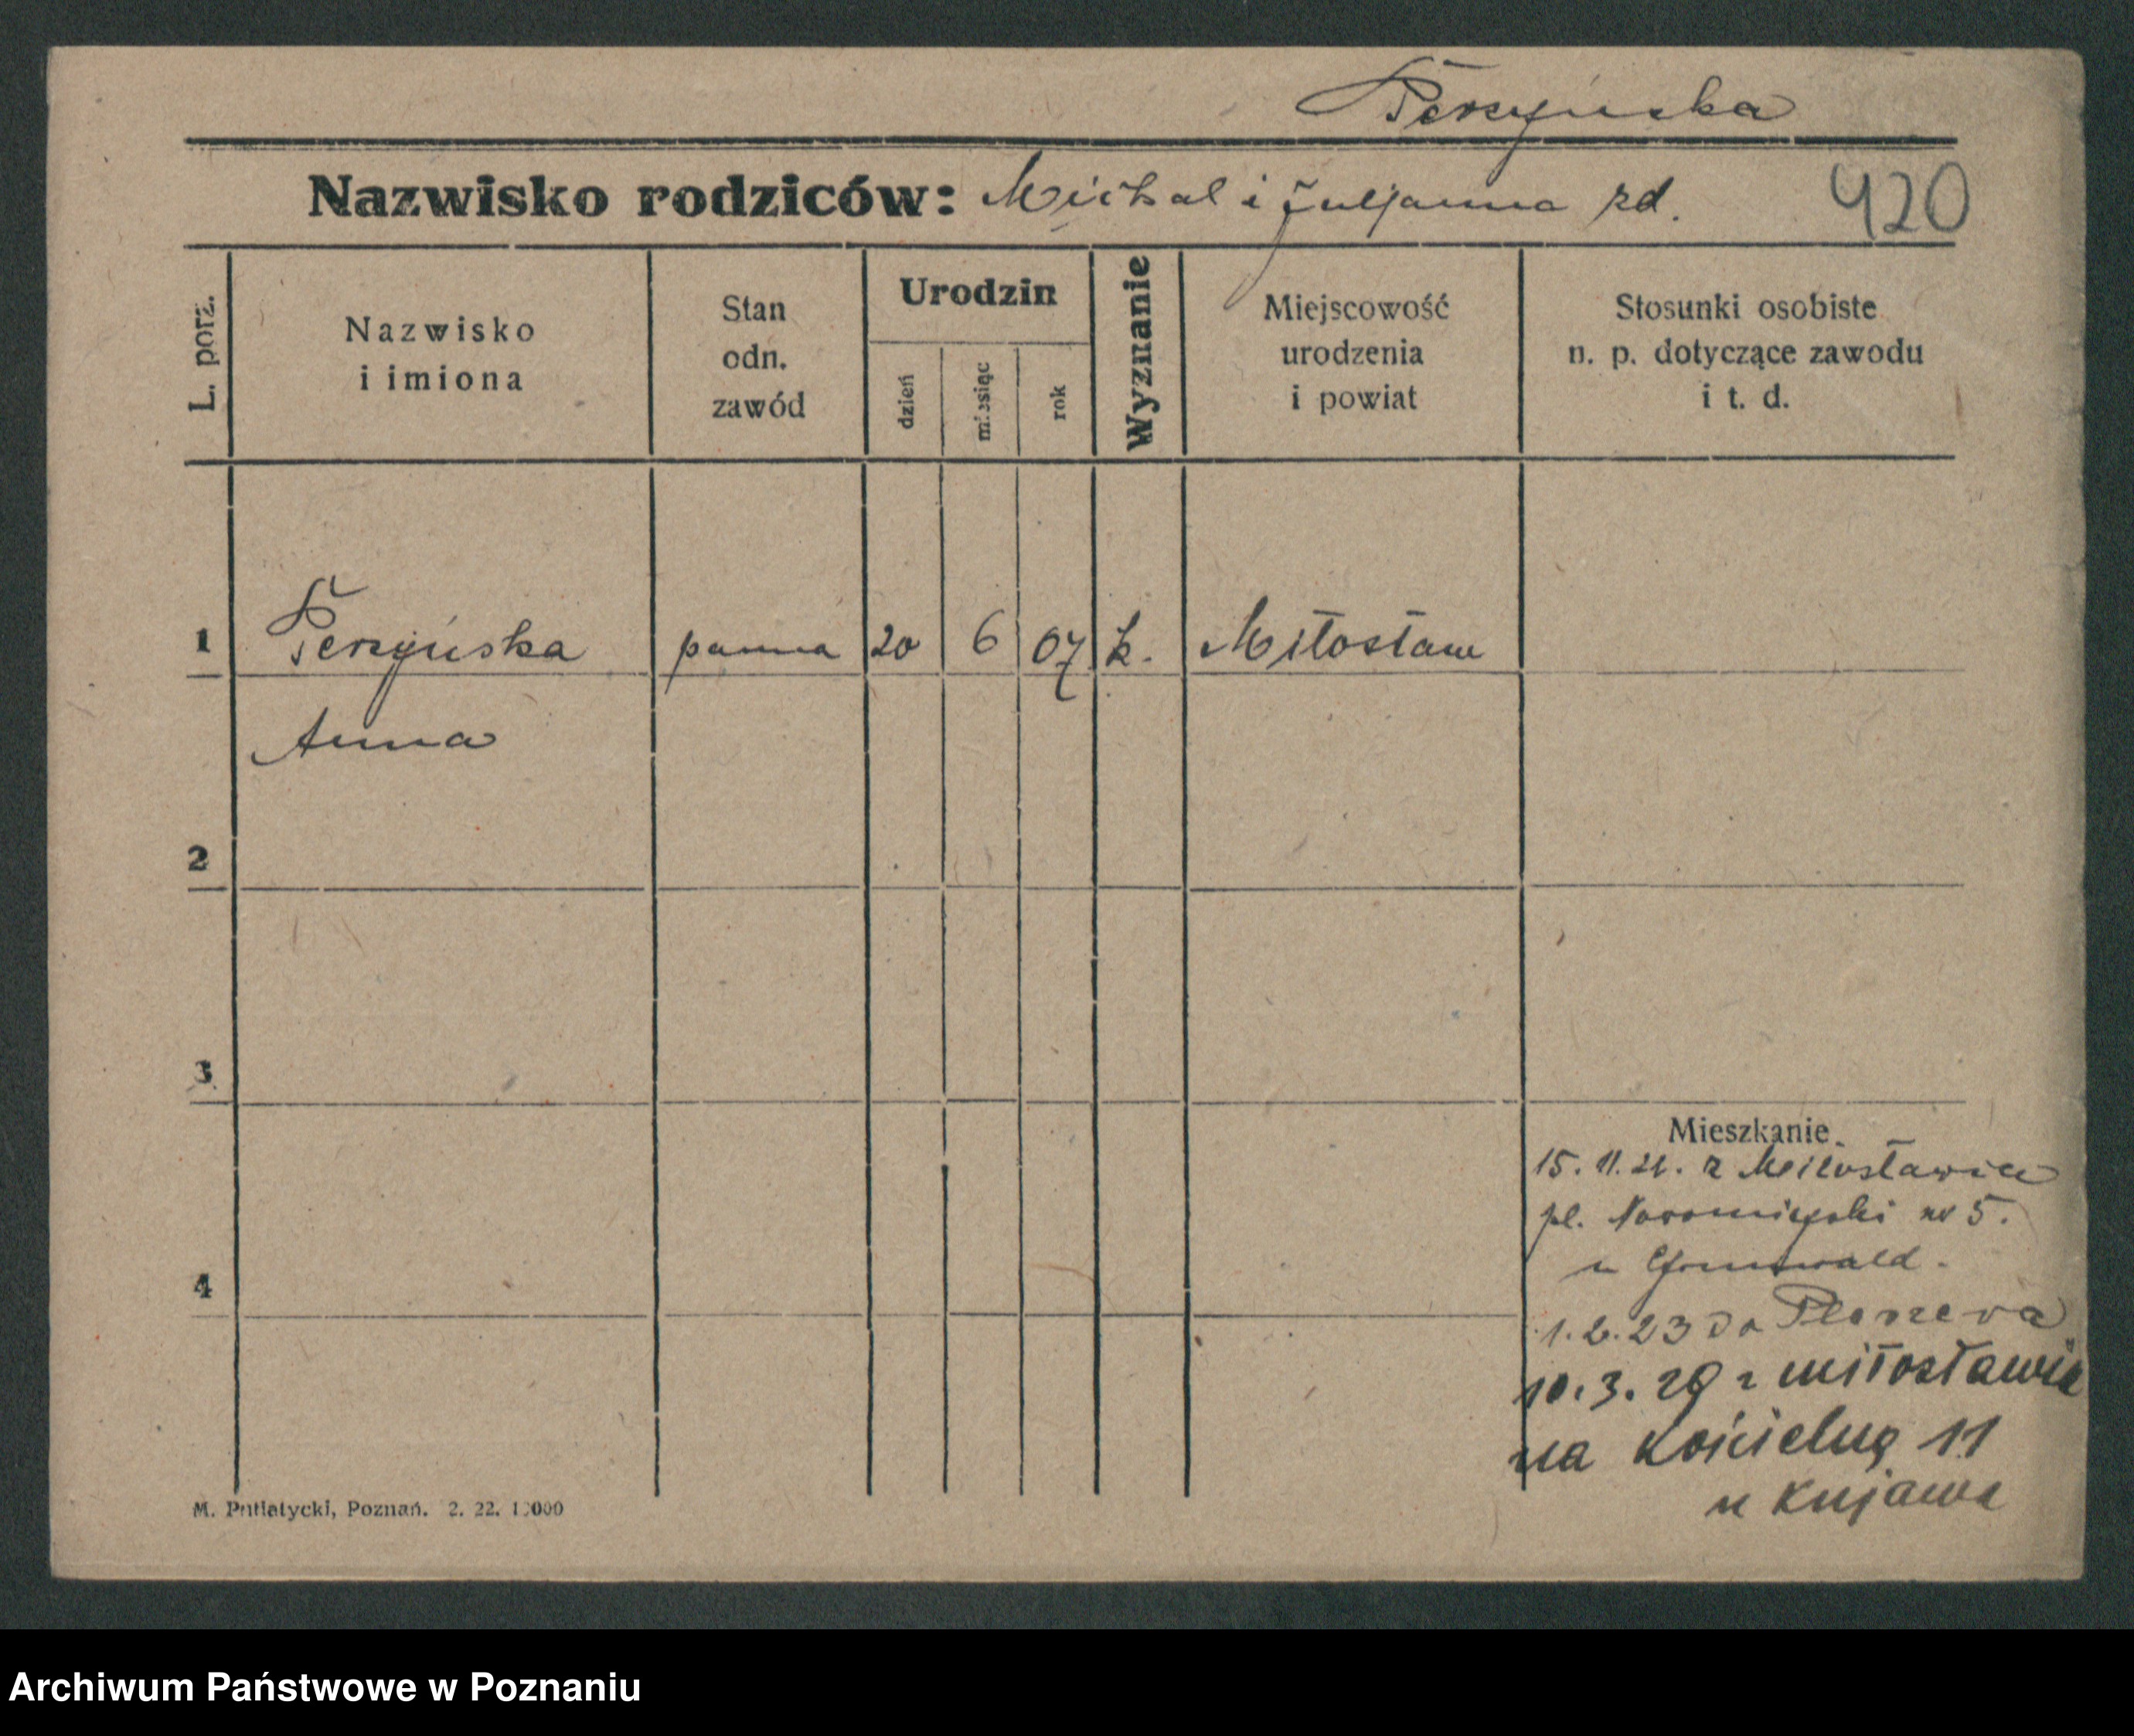 Perzyńska
Nazwisko rodziców: Michał i Juljanna zd.
420
L. porz.
Nazwisko
i imiona
Stan
odn.
zawód
Urodzin
dzień
miesiąc
rok
Wyznanie
Miejscowość
urodzenia
i powiat
Stosunki osobiste
n. p. dotyczące zawodu
i t. d.
1 Perzyńska panna 20 6 07 k. Miłosław
Anna
2
3
4
Mieszkanie
15. 11. z Miłosławia
pl. Nowomiejski nr 5.
u Grunwald.
23 do
10. 3. 29 z Miłosławia
na Kościelną 11
u Kujawa
M. Putiatycki, Poznań. 2. 22. 10000
Archiwum Państwowe w Poznaniu